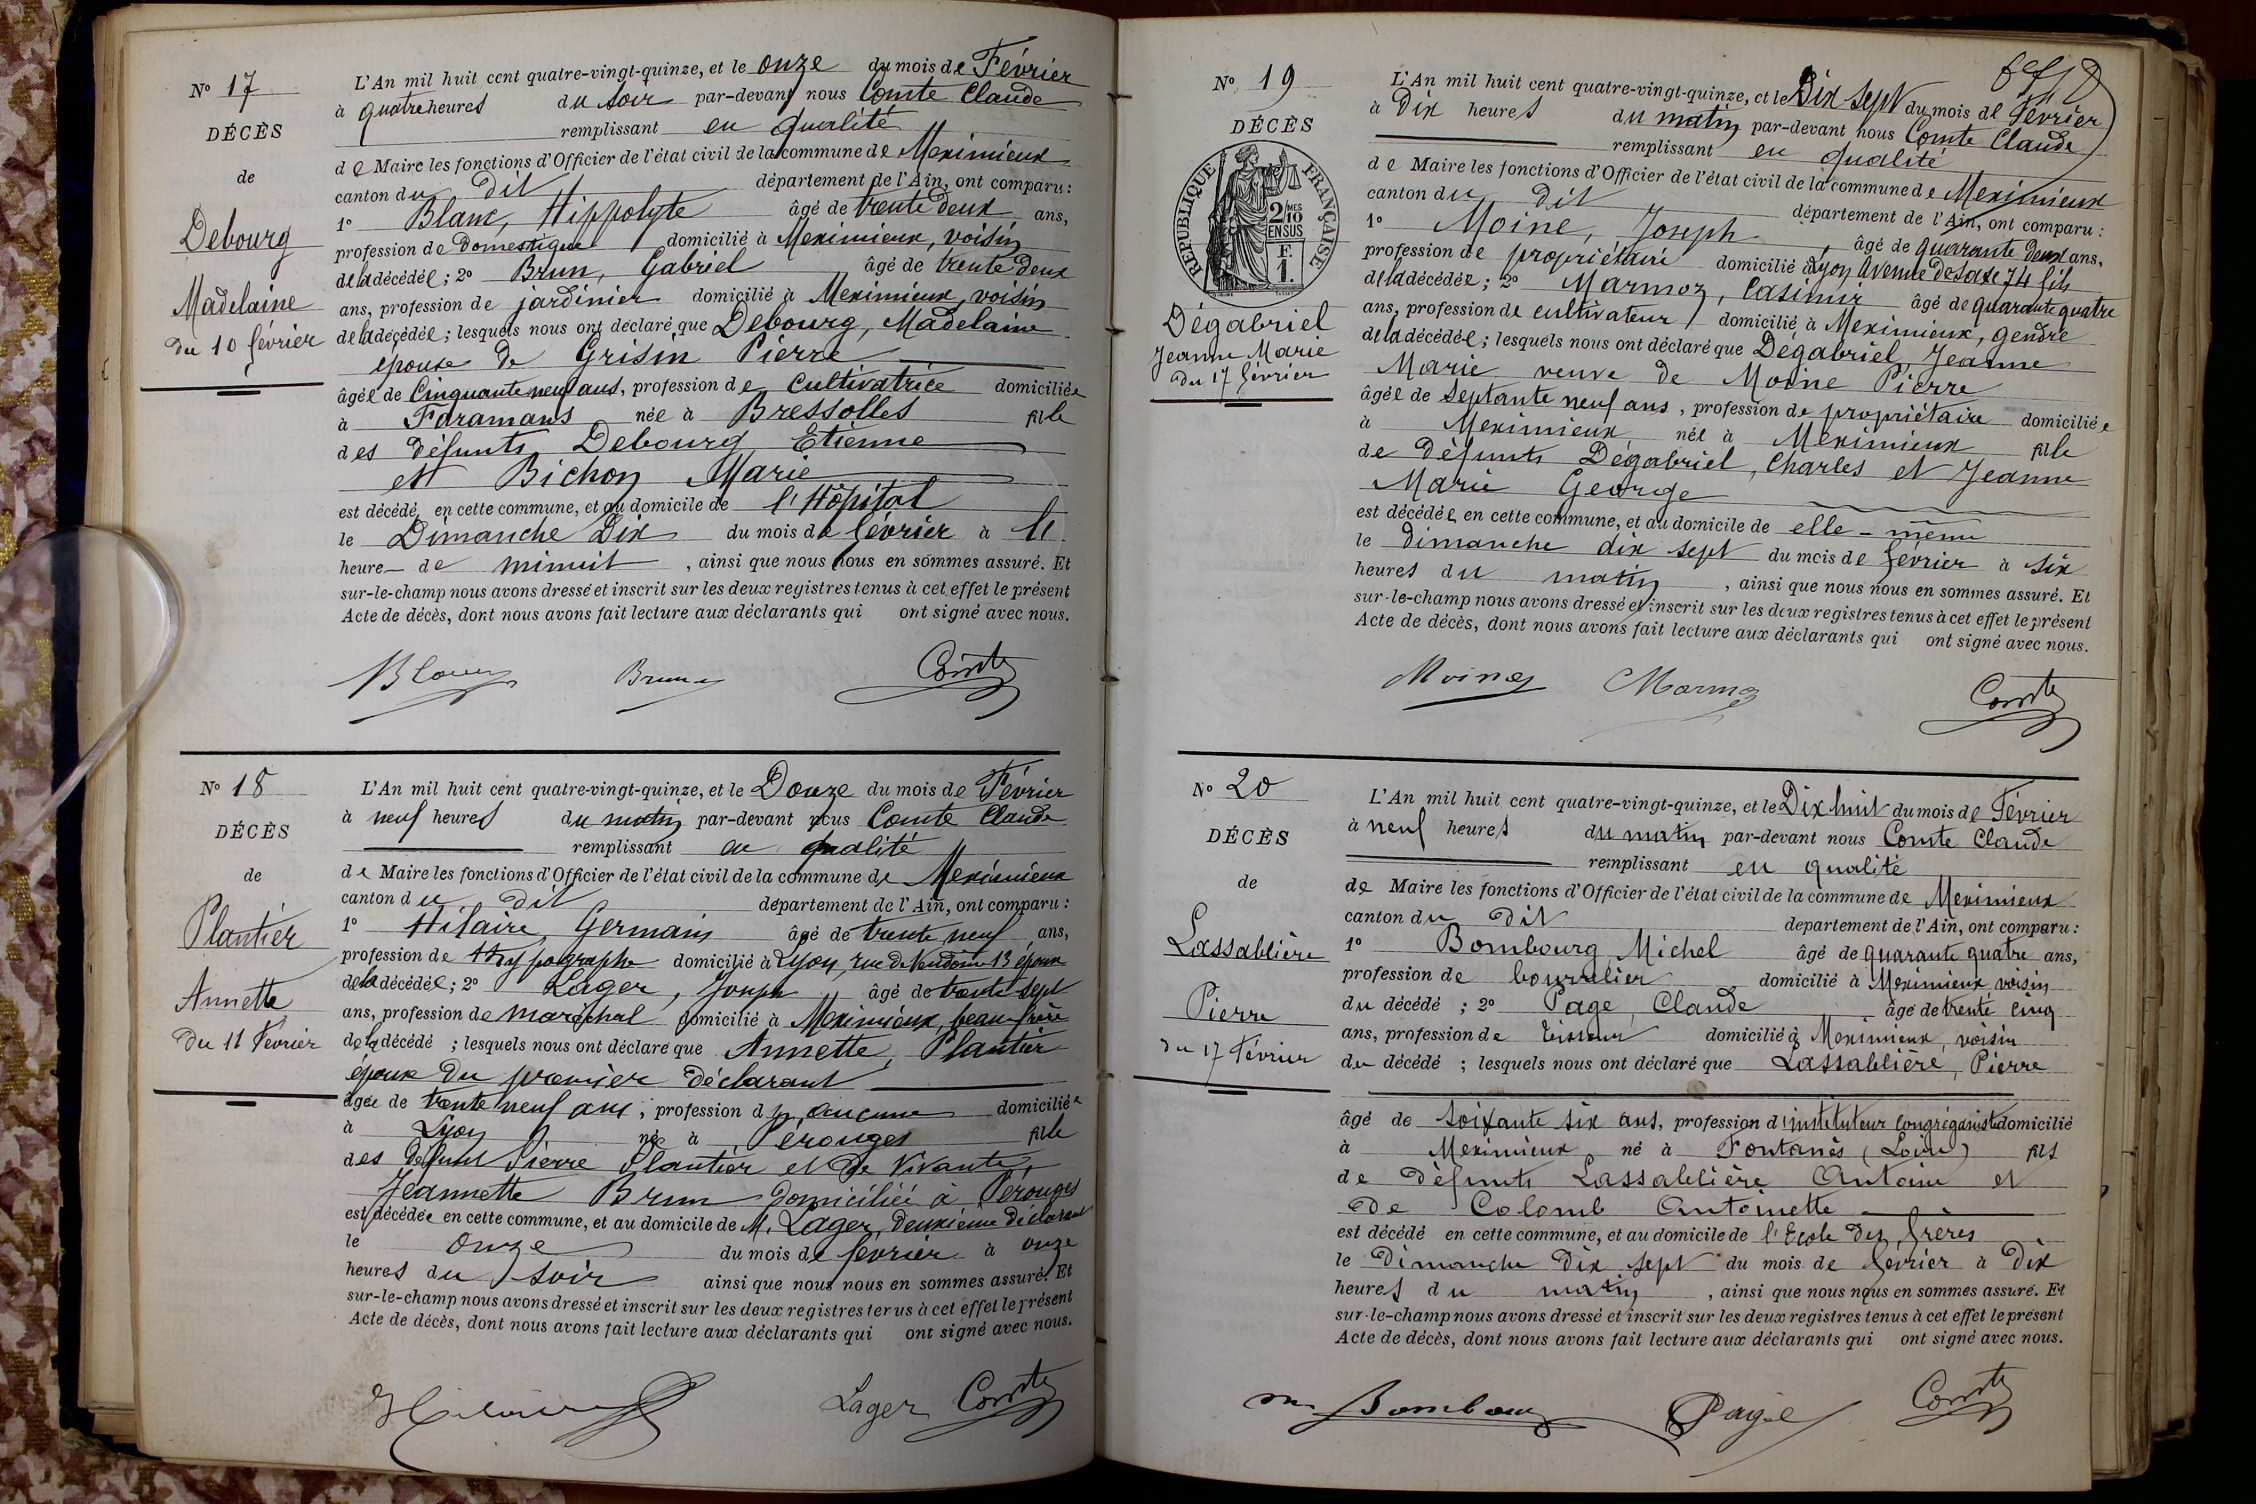 Nº 17
DÉCÈS
de
Debourg
Madelaine
du 10 février
L'An mil huit cent quatre-vingt-quinze, et le onze du mois de Février
à quatre heures du soir par-devant nous Comte Claude
remplissant en qualité
de Maire les fonctions d'Officier de l'état civil de la commune de Meximieux
canton du dit département de l'Ain, ont comparu :
1º Blanc, Hippolyte âgé de trente deux ans,
profession de domestique domicilié à Meximieux, voisin
de la décédée ; 2º Brun, Gabriel âgé de trente deux
ans, profession de jardinier domicilié à Meximieux, voisin
de la décédée ; lesquels nous ont déclaré que Debourg, Madelaine
épouse de Grisin Pierre
âgée de Cinquante neuf ans, profession de cultivatrice domiciliée
à Faramans née à Bressolles fille
des défunts Debourg Etienne
et Bichon Marie
est décédé en cette commune, et au domicile de l'Hôpital
le Dimanche Dix du mois de février à
heure de minuit, ainsi que nous nous en sommes assuré. Et
sur-le-champ nous avons dressé et inscrit sur les deux registres tenus à cet effet le présent
Acte de décès, dont nous avons fait lecture aux déclarants qui ont signé avec nous.
Blanc Brun Comte
Nº 18
DÉCÈS
de
Plantier
Annette
du 11 Février
L'An mil huit cent quatre-vingt-quinze, et le Douze du mois de Février
à neuf heures du matin par-devant nous Comte Claude
remplissant en qualité
de Maire les fonctions d'Officier de l'état civil de la commune de Meximieux
canton du dit département de l'Ain, ont comparu :
1º Hilaire, Germain âgé de trente neuf ans,
profession de thypographe domicilié à Lyon, rue de Vendome 13 époux
de la décédée ; 2º Lager, Joseph âgé de trente sept
ans, profession de maréchal domicilié à Meximieux, beau-frère
de la décédé ; lesquels nous ont déclaré que Annette, Plantier
épouse du premier déclarant
âgée de trente neuf ans, profession d aucune domiciliée
à Lyon née à Pérouges fille
des défunt Pierre Plantier et de Vivante,
Jeannette Brun domiciliée à Pérouges
est décédée en cette commune, et au domicile de M. Lager, deuxième déclarant
le onze du mois de février à onze
heures du soir ainsi que nous nous en sommes assuré. Et
sur-le-champ nous avons dressé et inscrit sur les deux registres tenus à cet effet le présent
Acte de décès, dont nous avons fait lecture aux déclarants qui ont signé avec nous.
Hilaire Lager Comte
Nº 19
DÉCÈS
RÉPUBLIQUE FRANÇAISE
2/10 MES
EN SUS
F.
1.
Dégabriel
Jeanne Marie
du 17 février
L'An mil huit cent quatre-vingt-quinze, et le Dix sept du mois de Février
à Dix heures du matin par-devant nous Comte Claude
remplissant en qualité
de Maire les fonctions d'Officier de l'état civil de la commune de Meximieux
canton du dit département de l'Ain, ont comparu :
1º Moine, Joseph, âgé de quarante deux ans,
profession de propriétaire domicilié à Lyon Avenue de Saxe 74 fils
de la décédée ; 2º Marmoz, Casimir âgé de quarante quatre
ans, profession de cultivateur domicilié à Meximieux, gendre
de la décédée ; lesquels nous ont déclaré que Dégabriel, Jeanne
Marie veuve de Moine Pierre
âgée de septante neuf ans, profession de propriétaire domiciliée
à Meximieux née à Meximieux fille
de défunts Dégabriel, Charles et Jeanne
Marie George
est décédée en cette commune, et au domicile de elle-même
le dimanche dix sept du mois de février à six
heures du matin, ainsi que nous nous en sommes assuré. Et
sur-le-champ nous avons dressé et inscrit sur les deux registres tenus à cet effet le présent
Acte de décès, dont nous avons fait lecture aux déclarants qui ont signé avec nous.
Moine Marmoz Comte
Nº 20
DÉCÈS
de
Lassablière
Pierre
du 17 Février
L'An mil huit cent quatre-vingt-quinze, et le Dix huit du mois de Février
à neuf heures du matin par-devant nous Comte Claude
remplissant en qualité
de Maire les fonctions d'Officier de l'état civil de la commune de Meximieux
canton du dit département de l'Ain, ont comparu :
1º Bombourg Michel âgé de quarante quatre ans,
profession de bourrelier domicilié à Meximieux voisin
du décédé ; 2º Page, Claude âgé de trente cinq
ans, profession de tisseur domicilié à Meximieux, voisin
du décédé ; lesquels nous ont déclaré que Lassablière, Pierre
âgé de soixante six ans, profession d'instituteur congréganiste domicilié
à Meximieux né à Fontanès (Loire) fils
de défunts Lassablière Antoine et
de Colomb Antoinette
est décédé en cette commune, et au domicile de l'Ecole des frères
le Dimanche Dix sept du mois de février à Dix
heures du matin, ainsi que nous nous en sommes assuré. Et
sur-le-champ nous avons dressé et inscrit sur les deux registres tenus à cet effet le présent
Acte de décès, dont nous avons fait lecture aux déclarants qui ont signé avec nous.
Bombourg Page Comte